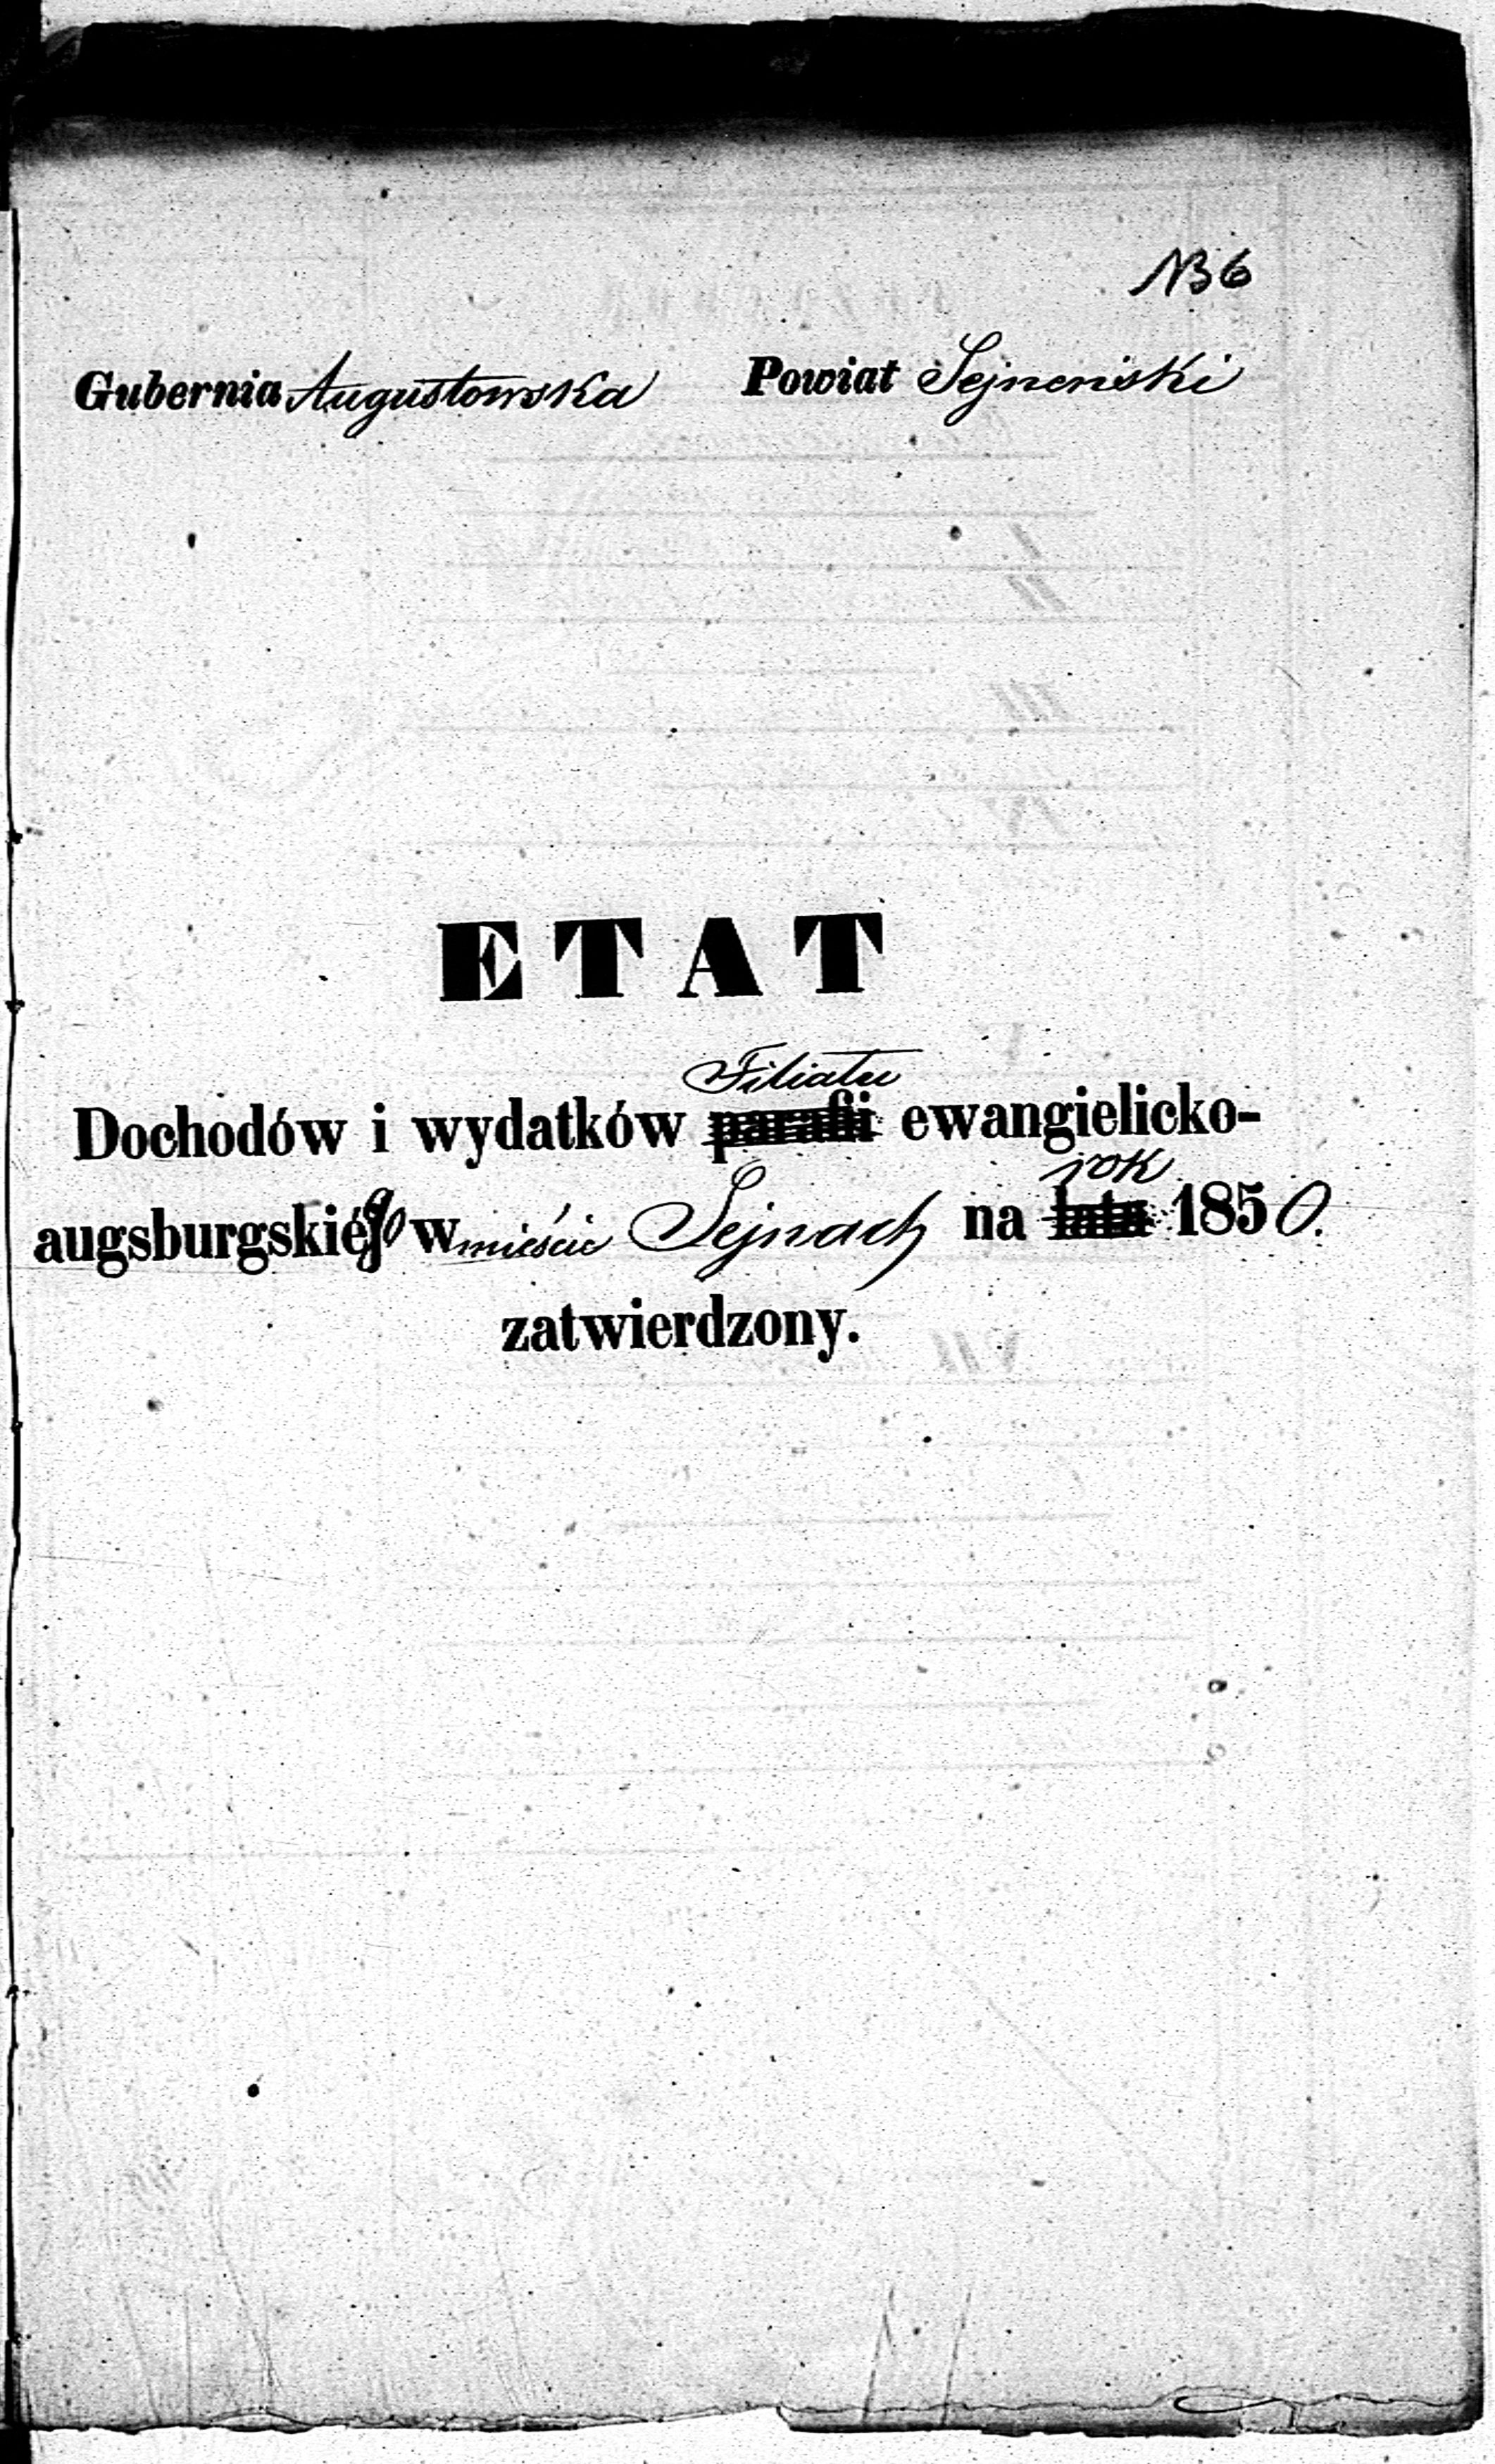 NB 6
Gubernia Augustowska Powiat Sejneński
ETAT
Filiału
Dochodów i wydatków parafii ewangielicko-
rok
augsburgskiégo w mieście Sejnach na lata 1850.
zatwierdzony.